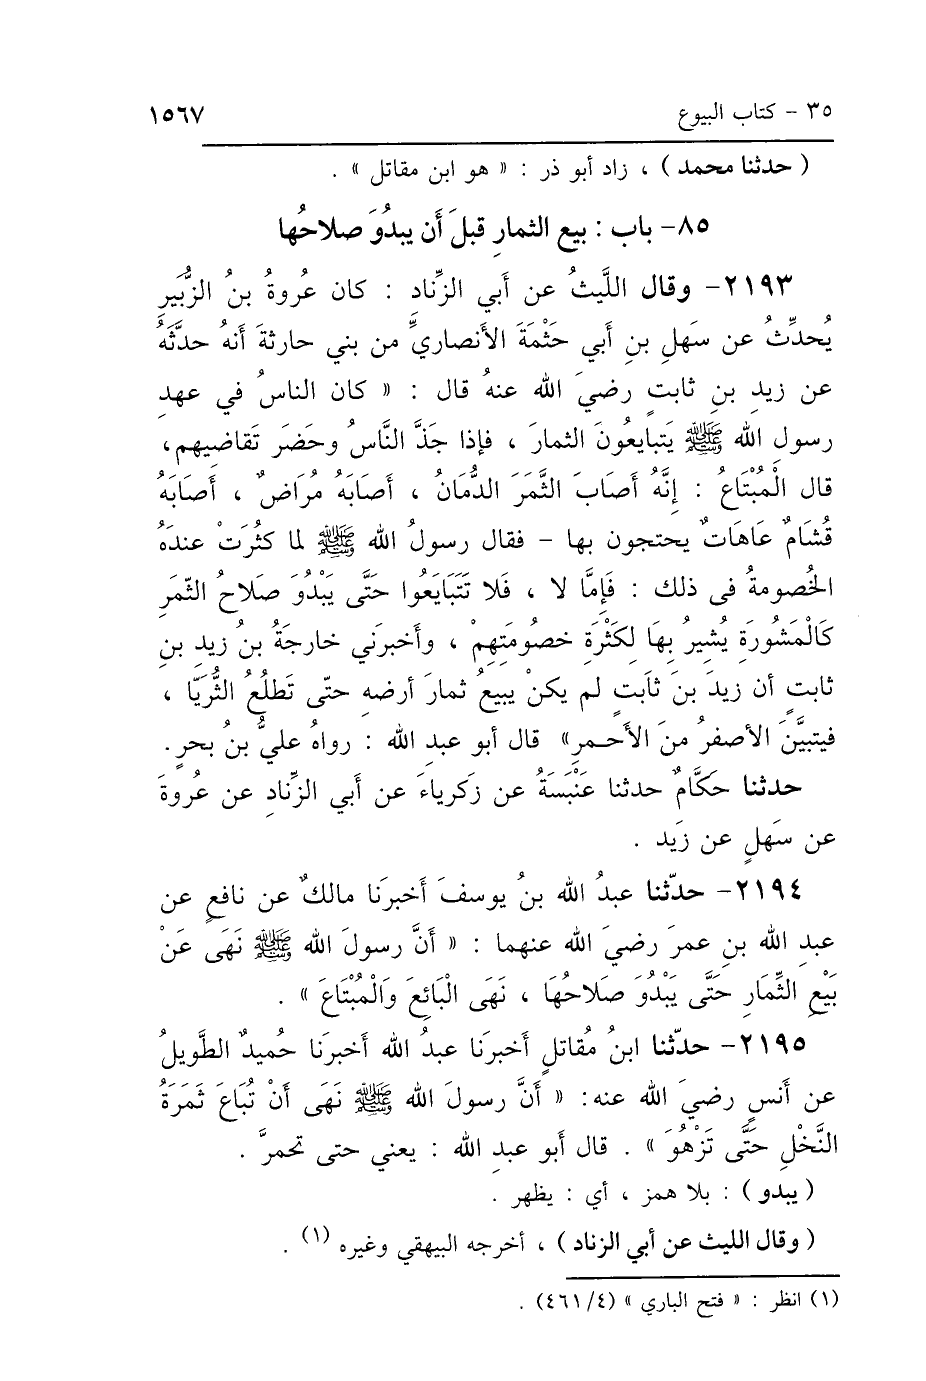 ٣٥ - كتاب البيوع ١٥٦٧
( حدثنا محمد ) ، زاد أبو ذر : « هو ابن مقاتل » .
٨٥- باب : بيع الثمارِ قبلَ أَن يبدُوَ صلاحُها
٢١٩٣- وقال اللَّيثُ عن أَبي الزِّنادِ : كان عُروةُ بنُ الزُّبَيرِ
يُحدِّثُ عن سَهلِ بنِ أبي حَثْمَةَ الأنصاريِّ من بني حارثةَ أنهُ حدَّثَهُ
عن زيدِ بنِ ثابتٍ رضيَ الله عنهُ قال : « كان الناسُ في عهدِ
رسول الله ﷺ يَتبايعُونَ الثمارَ ، فإذا جَذَّ النَّاسُ وحَضَرَ تَقاضِيهِم،
قال الْمُبْتَاعُ : إنَّهُ أصَابَ الثَّمَرَ الدُّمَانُ ، أصَابَهُ مُرَاضٌ ، أصَابَهُ
قُشَامٌ عَاهَاتٌ يحتجون بها – فقال رسولُ الله ﷺ لما كثُرَتْ عندهُ
الخُصومةُ فى ذلك : فَإمَّا لا ، فَلا تَتَبَايَعُوا حتَّى يَبْدُوَ صَلاحُ الثّمَرِ
كَالْمَشُورَةِ يُشِيرُ بِهَا لِكَثْرَةِ خصُومَتِهِمْ ، وأخبرَني خارجَةُ بنُ زيدِ بنِ
ثابتٍ أن زيدَ بنَ ثَابتٍ لم يكنْ يبيعُ ثمارَ أرضهِ حتّى تَطلُعُ الثُّريّا ،
فيتبيَّنَ الأصفرُ منَ الأحـمرِ» قال أبو عبدِ الله : رواهُ عليُّ بنُ بحرٍ.
حدثنا حَكَّامٌ حدثنا عَنْبَسَةُ عن زَكرياءَ عن أَبي الزِّنادِ عن عُروةَ
عن سَهلٍ عن زَيد .
٢١٩٤- حدّثنا عبدُ الله بنُ يوسفَ أَخبرَنا مالكٌ عن نافعٍ عن
عبدِ الله بنِ عمرَ رضيَ الله عنهما : « أَنَّ رسولَ الله ﷺ نَهَى عَنْ
بَيْعِ الثِّمَارِ حَتَّى يَبْدُوَ صَلاحُهَا ، نَهَى الْبَائِعَ وَالْمُبْتَاعَ » .
٢١٩٥- حدّثنا ابنُ مُقاتلٍ أخبرَنا عبدُ الله أخبرَنا حُميدٌ الطَّويلُ
عن أَنسٍ رضيَ الله عنه: « أَنَّ رسولَ الله ﷺ نَهَى أَنْ تُبَاعَ ثَمَرَةُ
النَّخْلِ حَتَّى تَزْهُوَ » . قال أَبو عبدِ الله : يعني حتى تحمرَّ .
( يبدو ) : بلا همز ، أي : يظهر .
( وقال الليث عن أبي الزناد ) ، أخرجه البيهقي وغيره (١) .
(١) انظر : « فتح الباري » (٤/ ٤٦١) .